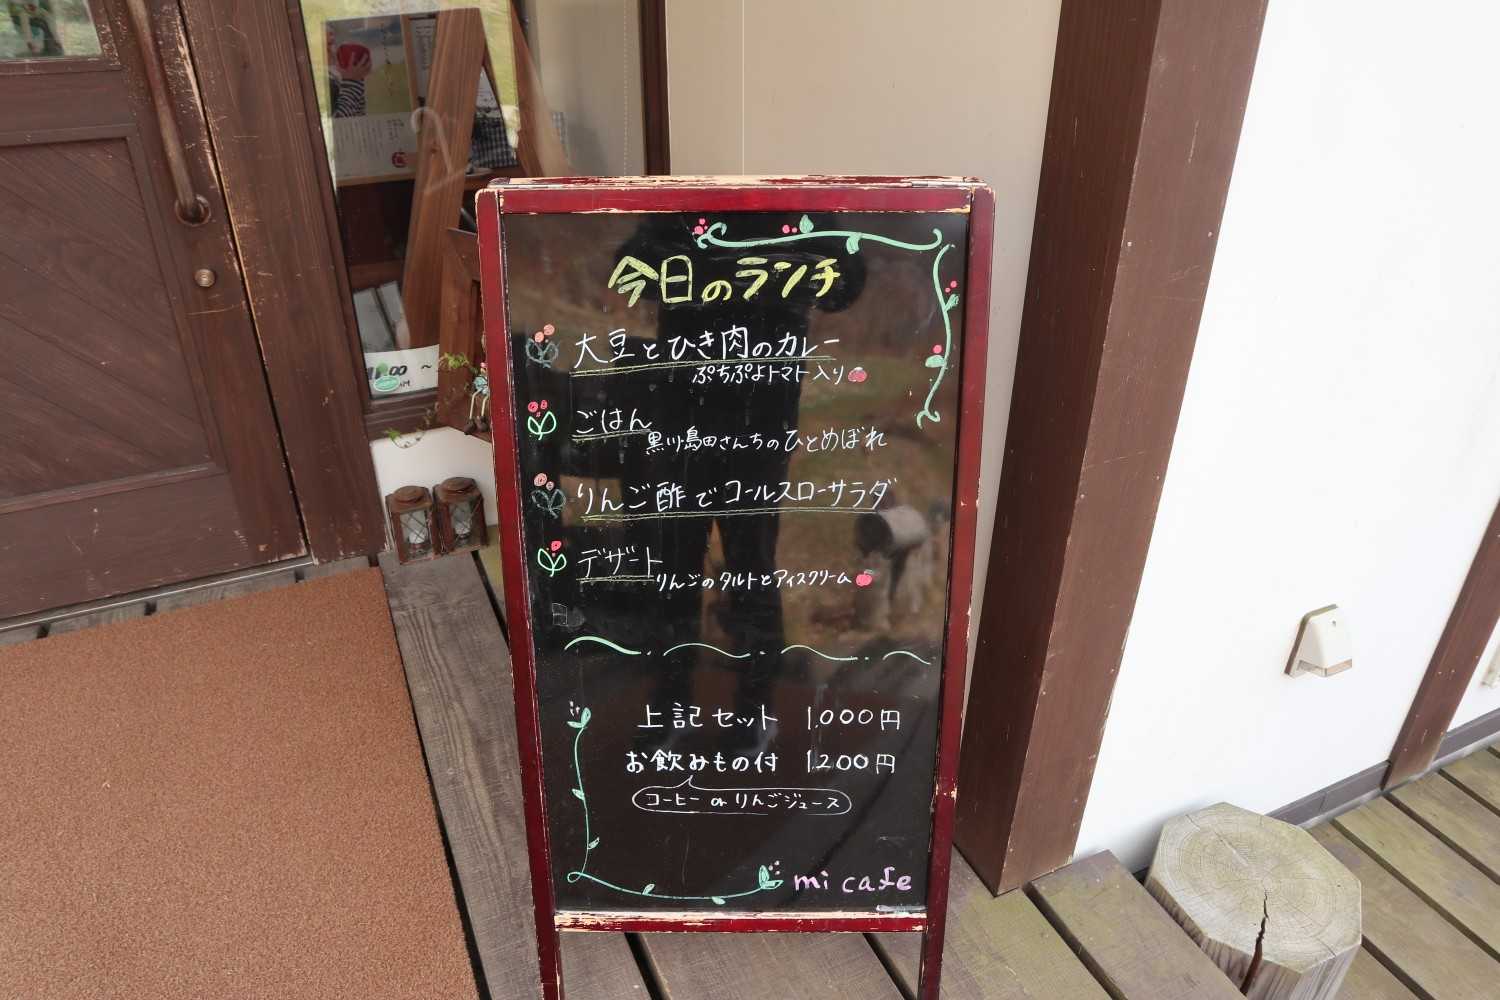 今日のランチ
大豆とひき肉のカレー
ぷちぷよトマト入り
ごはん
黒川島田さんちのひとめぼれ
りんご酢でコールスローサラダ
デザート
りんごのタルトとアイスクリーム
上記セット 1.000円
お飲みもの付 1.200円
コーヒー or りんごジュース
mi cafe